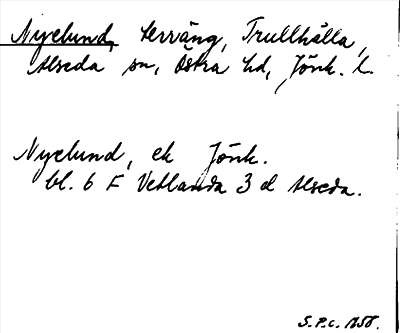 Nyelund, terräng, Trullhälla,
Alseda sn, Östra hd, Jönk. l.
Nyelund, ek Jönk.
bl. 6 F Vetlanda 3 d Alseda.
S.P.C. 1958.